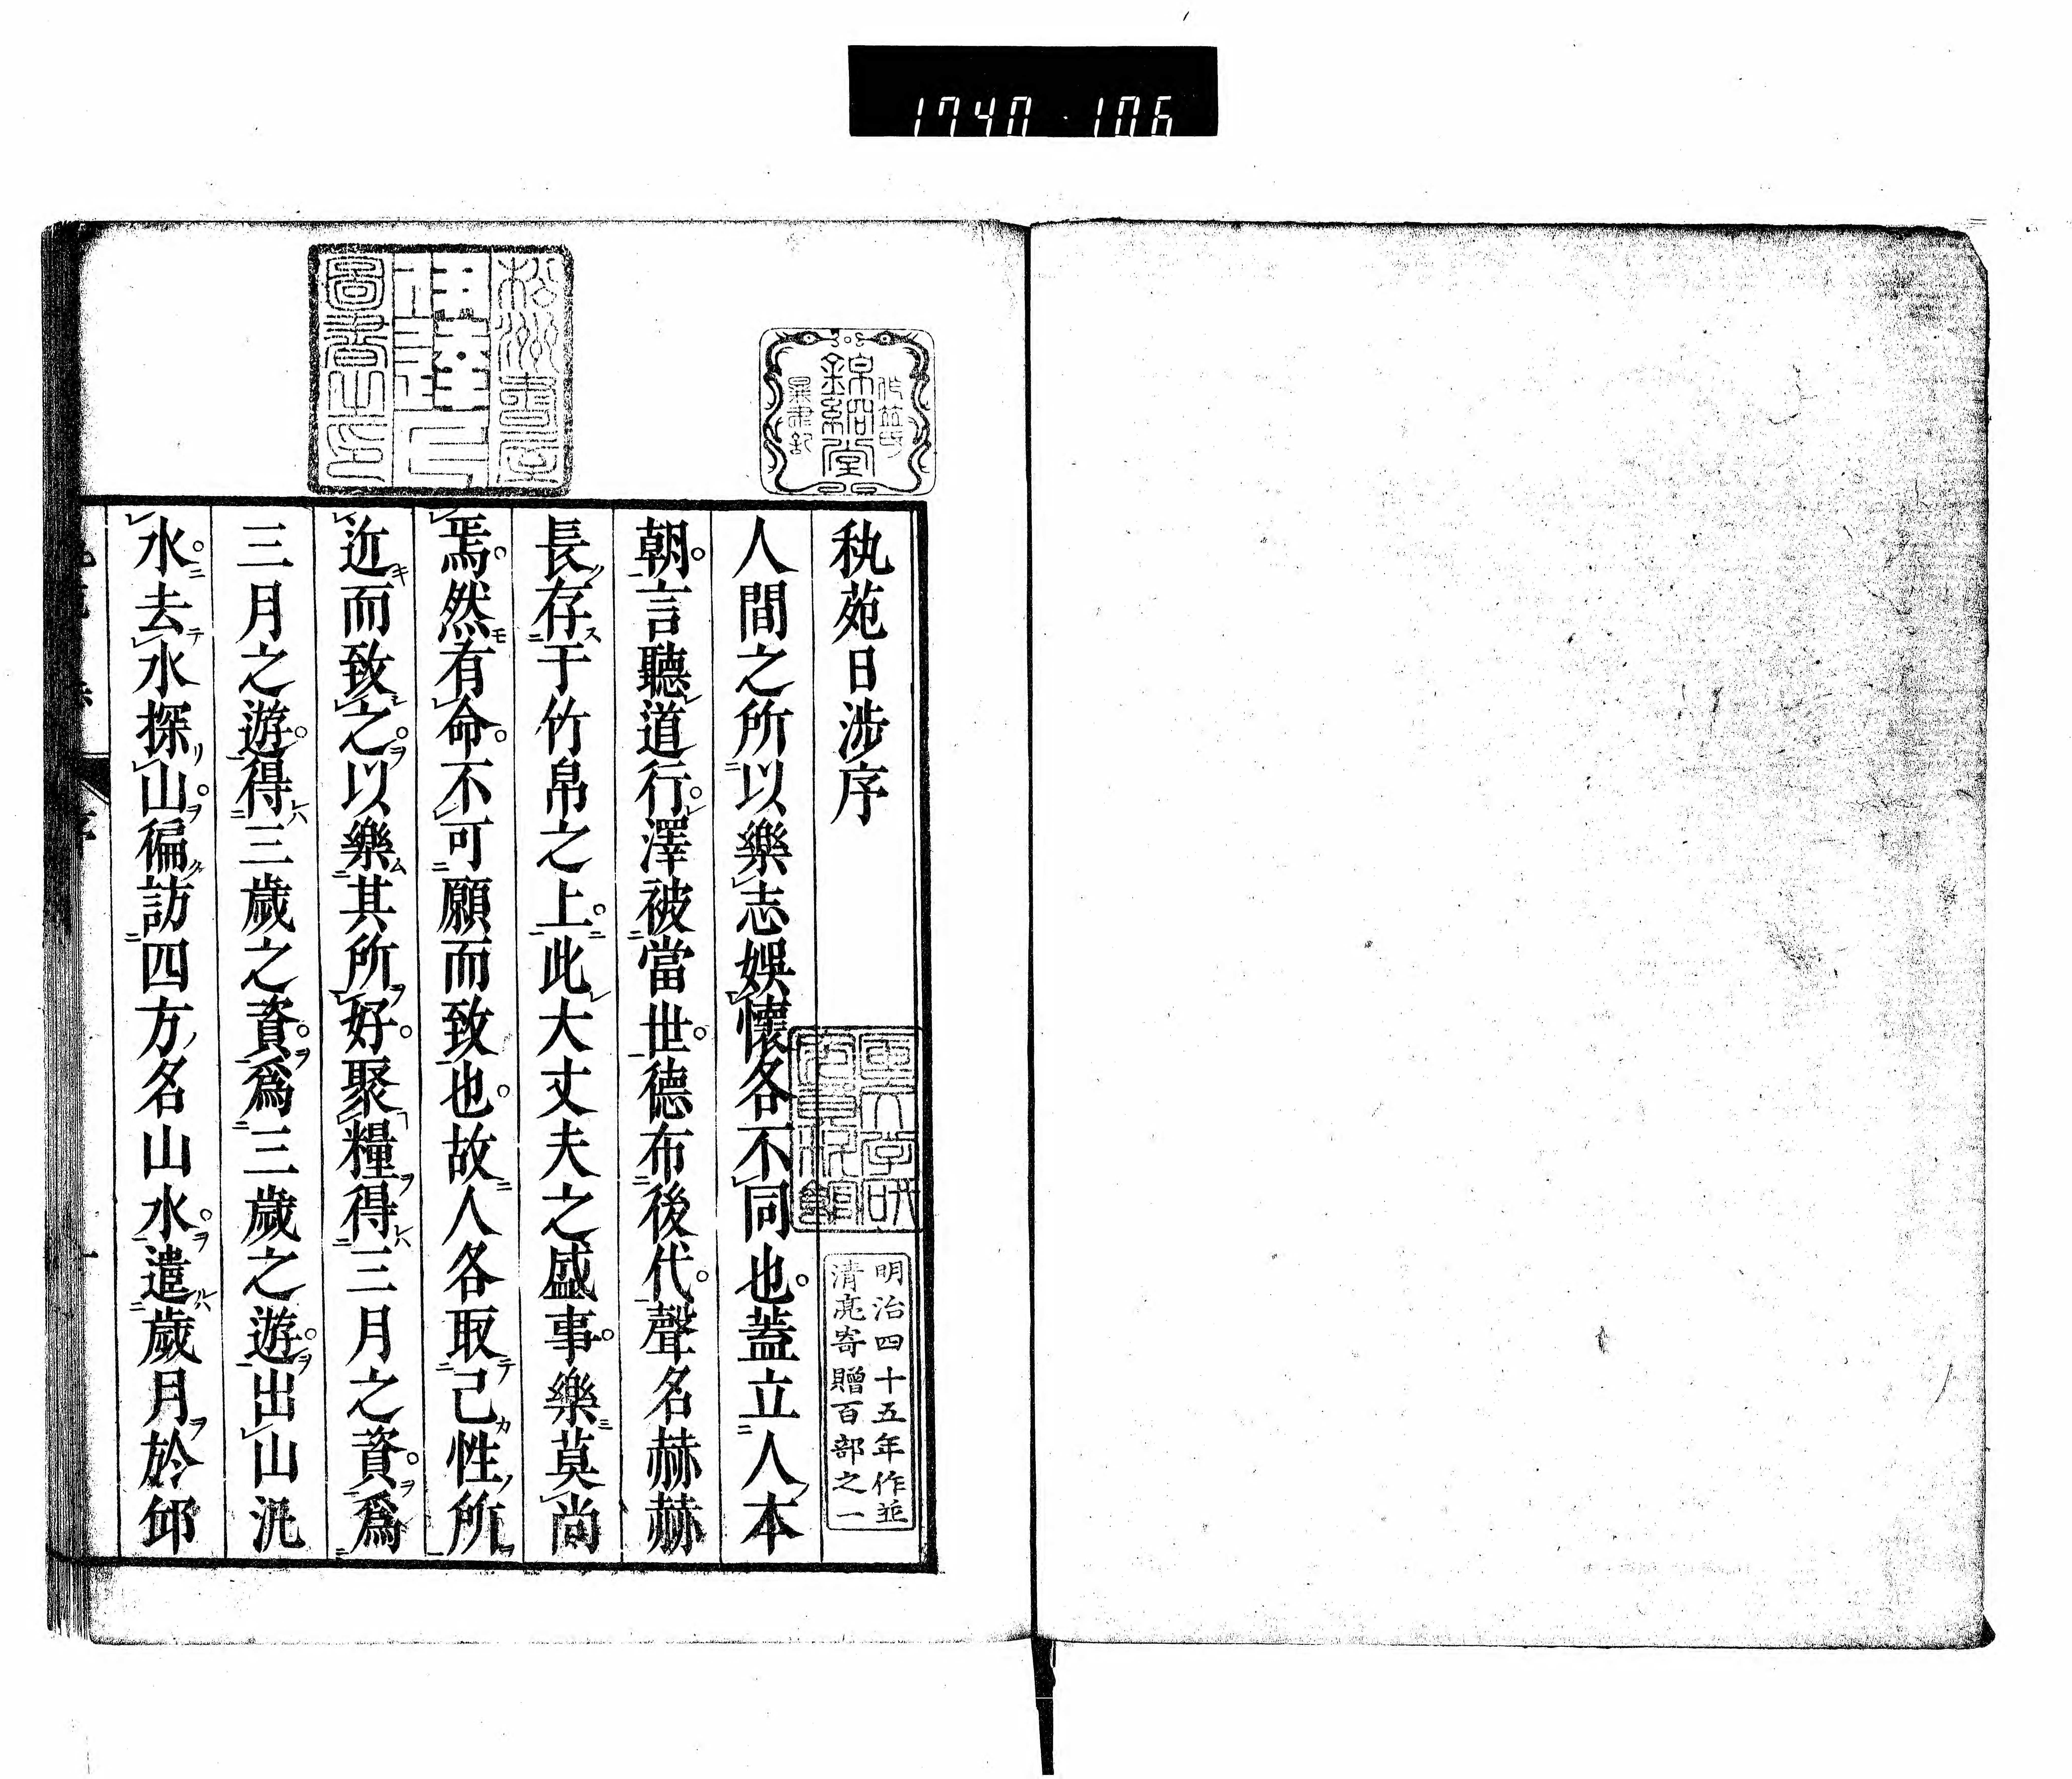 1740・106
秇苑日渉序
人間之所以樂志娯懷各不同也。蓋立人本
朝。言聽道行。澤被當世。德布後代。聲名赫赫
長存于竹帛之上。此大丈夫之盛事。樂莫尚
焉。然有命。不可願而致也。故人各取己性所
近而致之。以樂其所好。聚糧得三月之資。爲
三月之遊。得三歲之資。爲三歲之遊。出山汎
水。去水探山。徧訪四方名山水。遣歲月於邱
明治四十五年作並
清亮寄贈百部之一
松洲書屋
圖書之印
錦絅堂